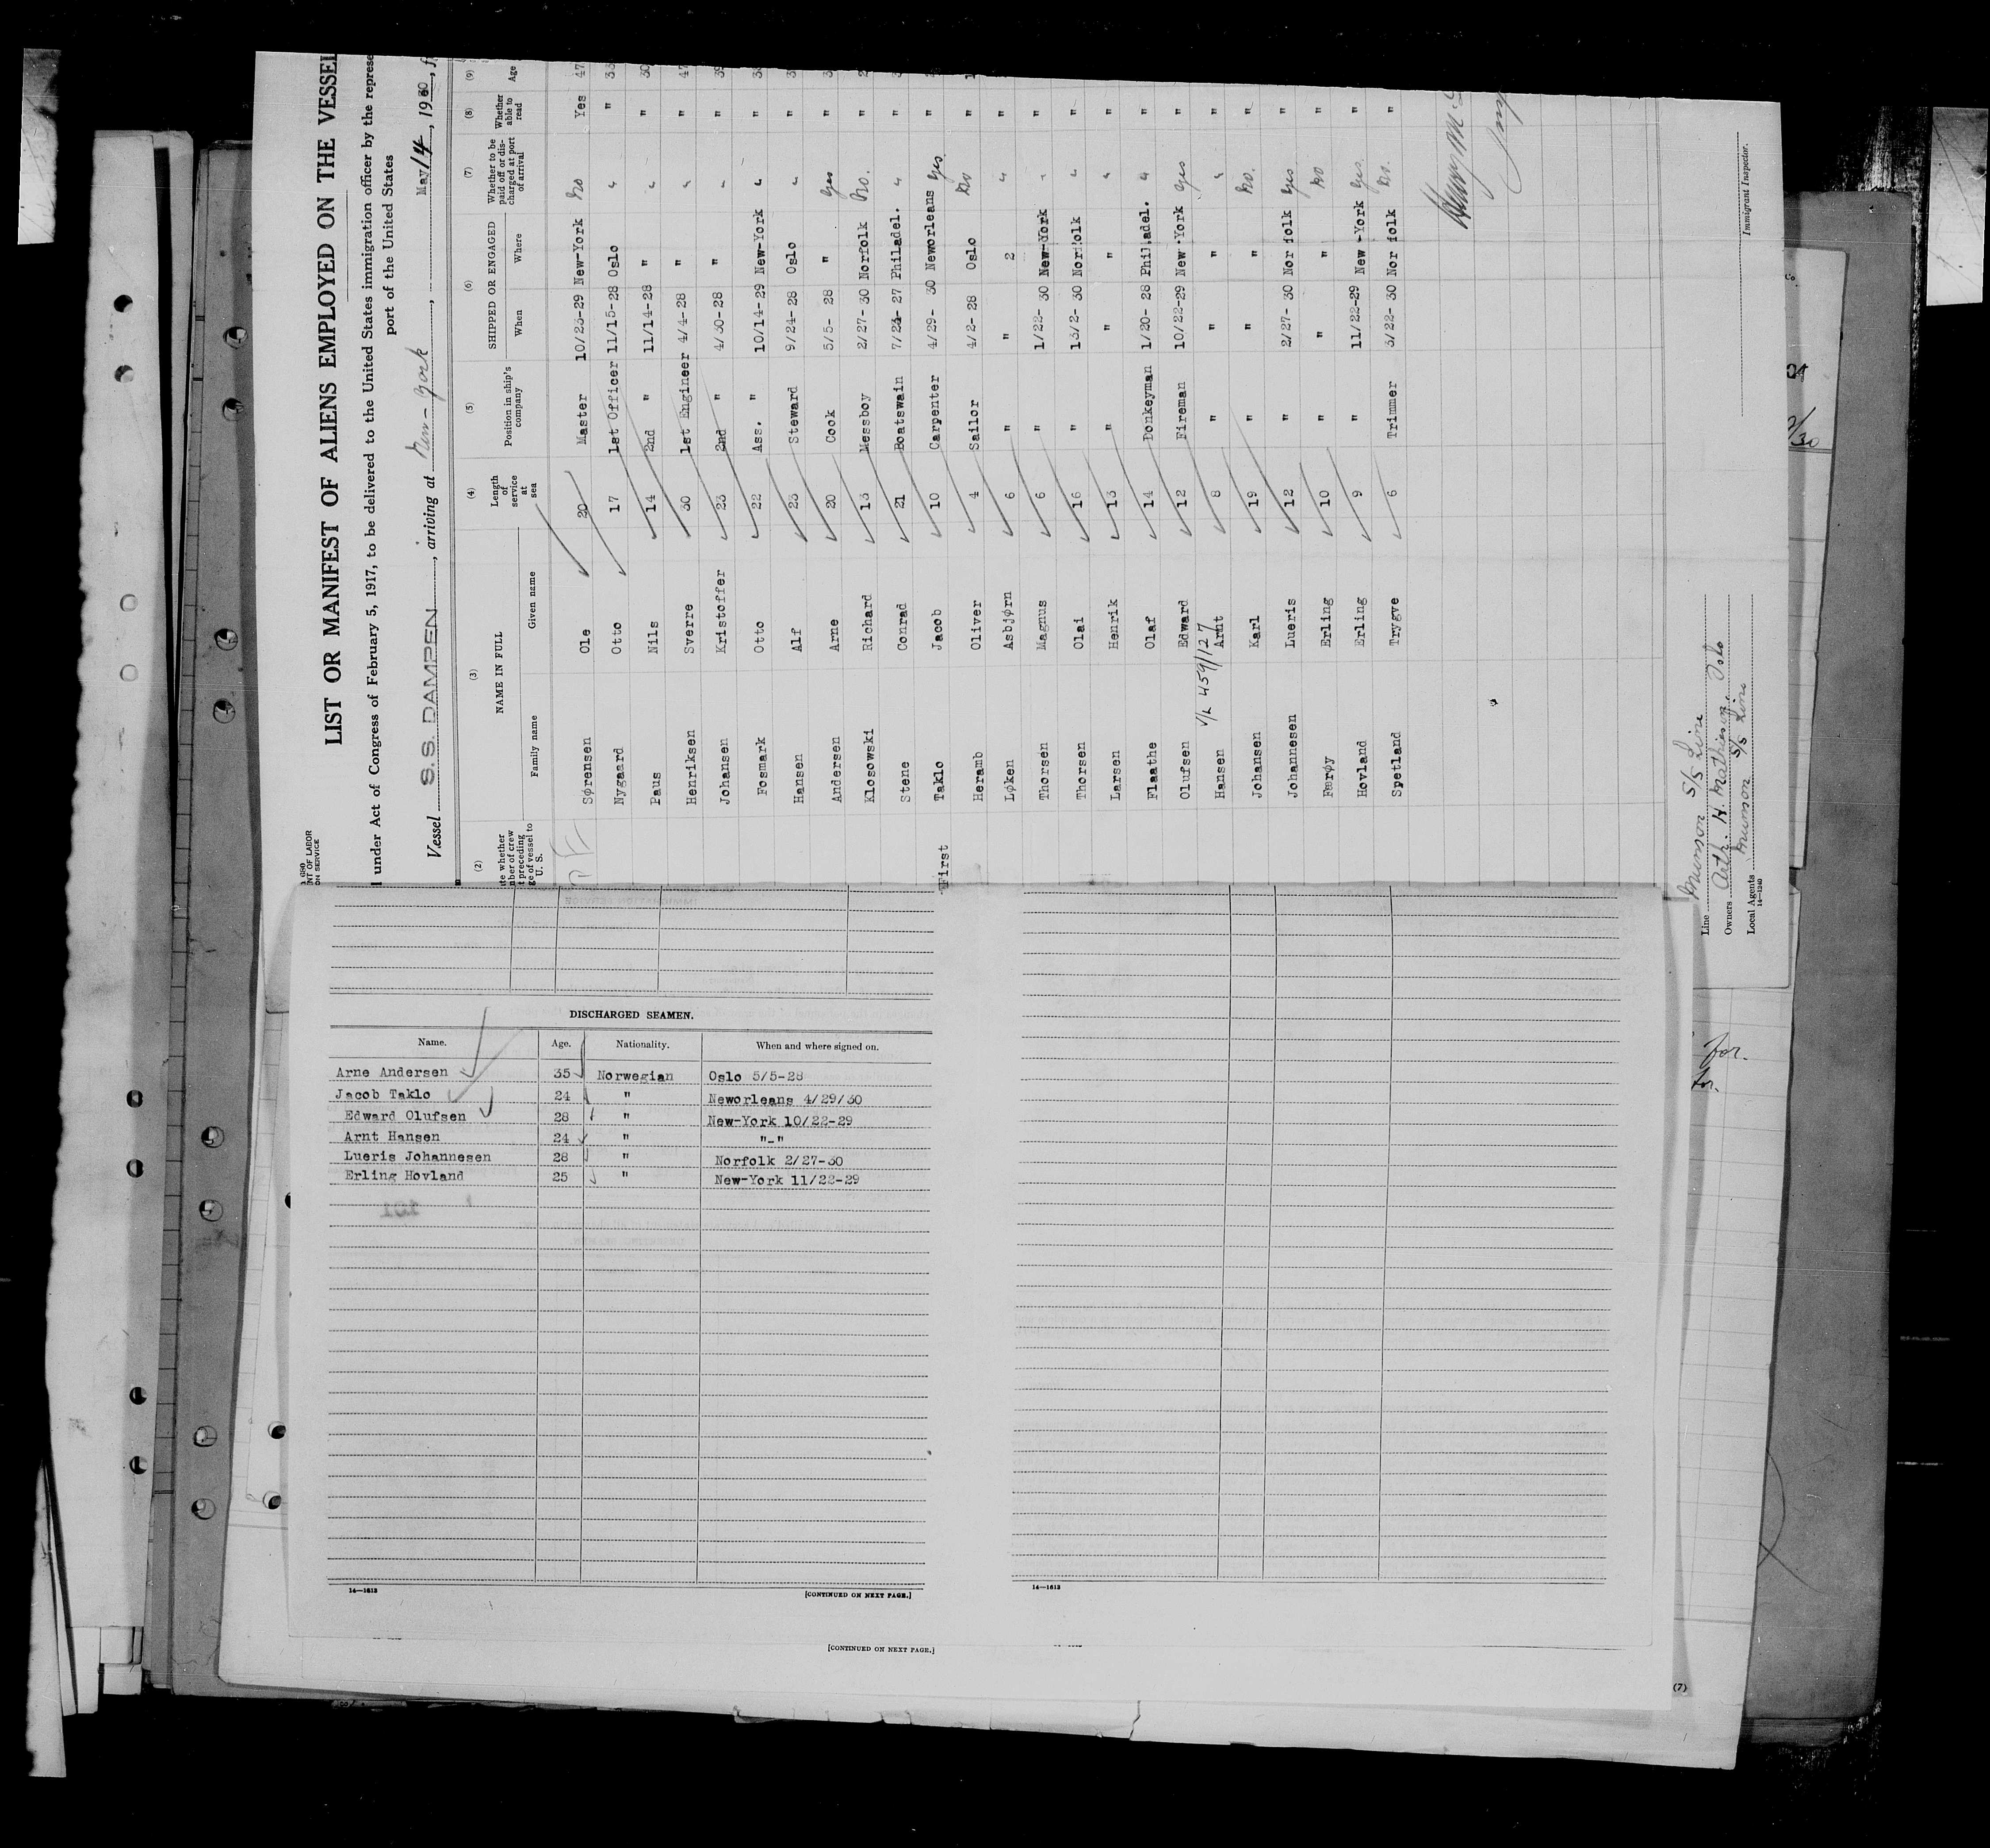 LIST OR MANIFEST OF ALIENS EMPLOYED ON THE VESSEL
under Act of Congress of February 5, 1917, to be delivered to the United States immigration officer by the represe
port of the United States
Vessel S. S. DAMPEN, arriving at New-York, May 14, 1930, f
NT OF LABOR
ON SERVICE
(2) (3) (4) (5) (6) (7) (8) (9)
NAME IN FULL SHIPPED OR ENGAGED
te whether
nber of crew
t preceding
ge of vessel to
U. S.
Family name Given name Length of service at sea Position in ship's company When Where Whether to be paid off or discharged at port of arrival Whether able to read Age
Sørensen Ole 20 Master 10/23-29 New-York No Yes 47
Nygaard Otto 17 1st Officer 11/15-28 Oslo " "
Paus Nils 14 2nd " 11/14-28 " " "
Henriksen Sverre 30 1st Engineer 4/4-28 " " " 47
Johansen Kristoffer 23 2nd " 4/30-28 " " "
Fosmark Otto 22 Ass. " 10/14-29 New-York " "
Hansen Alf 23 Steward 9/24-28 Oslo " "
Andersen Arne 20 Cook 5/5-28 " Yes "
Klosowski Richard 13 Messboy 2/27-30 Norfolk No. "
Stene Conrad 21 Boatswain 7/23-27 Philadel. " "
First Taklo Jacob 10 Carpenter 4/29-30 Neworleans Yes "
Heramb Oliver 4 Sailor 4/2-28 Oslo No "
Løken Asbjørn 6 " " 2 " "
Thorsen Magnus 6 " 1/22-30 New-York " "
Thorsen Olai 16 " 13/2-30 Norfolk " "
Larsen Henrik 13 " " " " "
Flaathe Olaf 14 Donkeyman 1/20-28 Philadel. " "
Olufsen Edward 12 Fireman 10/22-29 New-York Yes "
V/L 459/127
Hansen Arnt 8 " " " " "
Johansen Karl 19 " " " No. "
Johannesen Lueris 12 " 2/27-30 Norfolk Yes "
Færøy Erling 10 " " " No "
Hovland Erling 9 " 11/22-29 New-York Yes "
Spetland Trygve 6 Trimmer 3/22-30 Norfolk No. "
Immigrant Inspector.
Line Munson S/S Line
Owners Arth. H. Mathiesen, Oslo
Local Agents Munson S/S Line
14—1240
DISCHARGED SEAMEN.
Name. Age. Nationality. When and where signed on.
Arne Andersen 35 Norwegian Oslo 5/5-28
Jacob Taklo 24 " Neworleans 4/29/30
Edward Olufsen 28 " New-York 10/22-29
Arnt Hansen 24 " "-"
Lueris Johannesen 28 " Norfolk 2/27-30
Erling Hovland 25 " New-York 11/22-29
14—1613
[CONTINUED ON NEXT PAGE.]
14—1613
[CONTINUED ON NEXT PAGE.]
(7)